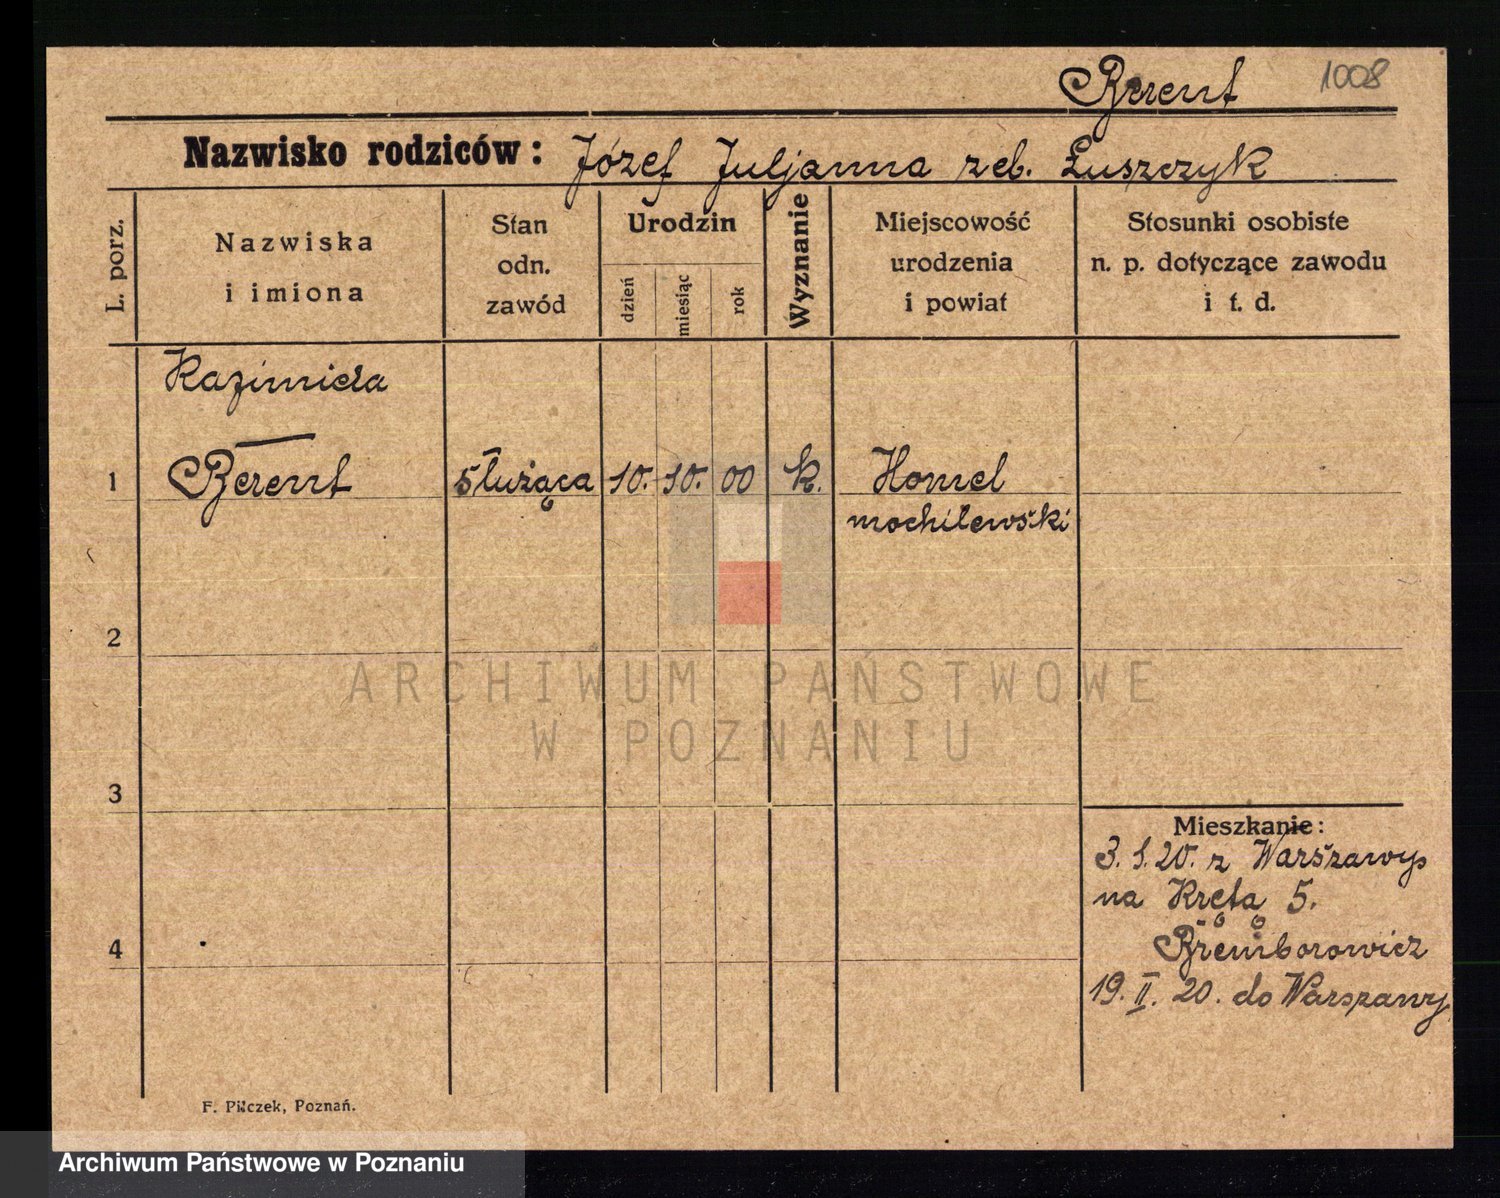 Berent 1008
Nazwisko rodziców: Józef Juljanna zeb. Łuszczyk
L. porz.
Nazwiska
i imiona
Stan
odn.
zawód
Urodzin
dzień
miesiąc
rok
Wyznanie
Miejscowość
urodzenia
i powiat
Stosunki osobiste
n. p. dotyczące zawodu
i t. d.
Kazimiera
1 Berent służąca 10. 10. 00 k. Homel
mochilewski
2
3
4
Mieszkanie:
3. 1. 20. z Warszawy
na Krętą 5.
Bremborowicz
19. II. 20. do Warszawy
F. Pilczek, Poznań.
ARCHIWUM PAŃSTWOWE
W POZNANIU
Archiwum Państwowe w Poznaniu